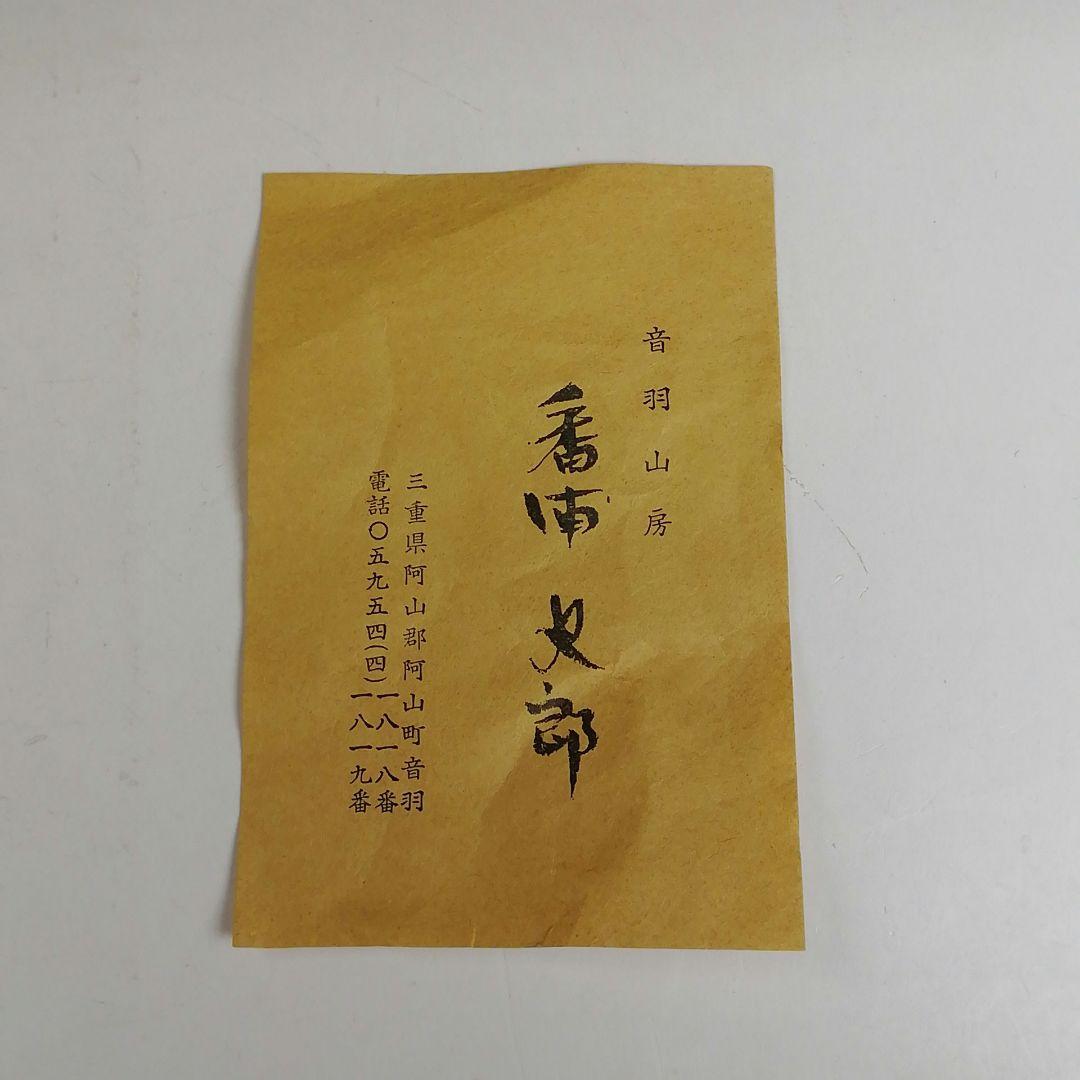 音羽山房
番浦史郎
三重県阿山郡阿山町音羽
電話〇五九五四(四)一八一八番
一八一九番